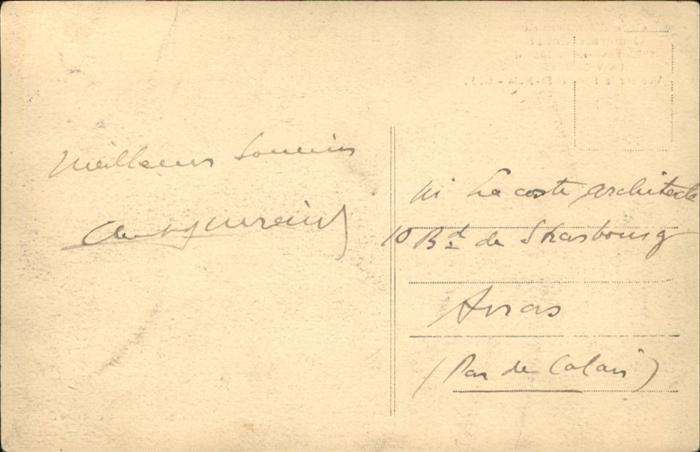 Meilleurs Souvenirs
M Lacoste architecte
10 Bd de Strasbourg
Arras
(Pas de Calais)